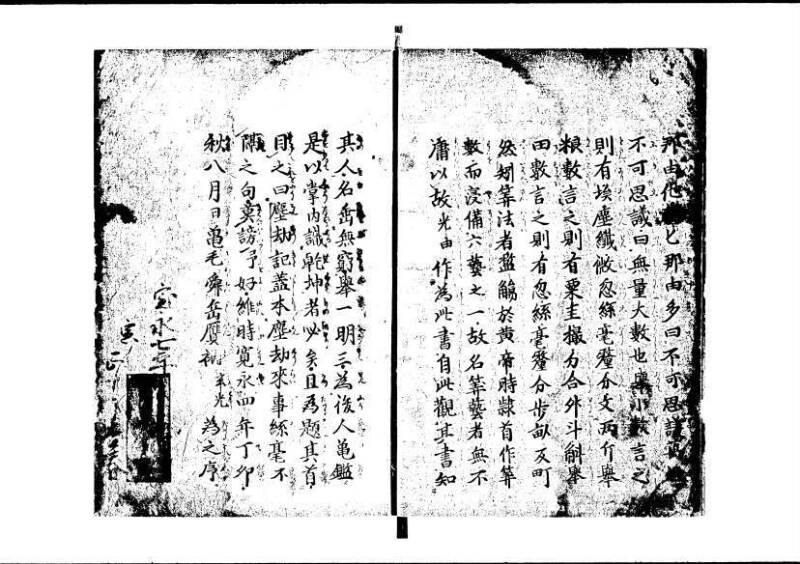 那由他 那由多曰不可思議
不可思議曰無量大數也舉小數言之
則有埃塵纖微忽絲毫釐分文兩斤舉
粮數言之則有粟圭撮勺合升斗斛舉
田數言之則有忽絲毫釐分步畝反町
然矧筭法者濫觴於黄帝時隷首作筭
數而浸備六藝之一故名筭藝者無不
庸以故光由作為此書自此觀其書知
其人名垂無窮舉一明三為後人亀鑑
是以掌内識乾坤者必矣且為題其首
目之曰塵劫記蓋本塵劫來事絲毫不
隔之句 予好維時寛永四年丁卯
秋八月日亀毛舜岳 玄光 為之序
宝永七年
寅 正